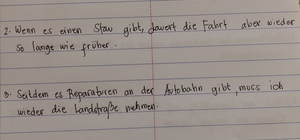 2. Wenn es einen Stau gibt, dauert die Fahrt aber wieder
so lange wie früher.
3. Seitdem es Reparaturen an der Autobahn gibt, muss ich
wieder die Landstraße nehmen.